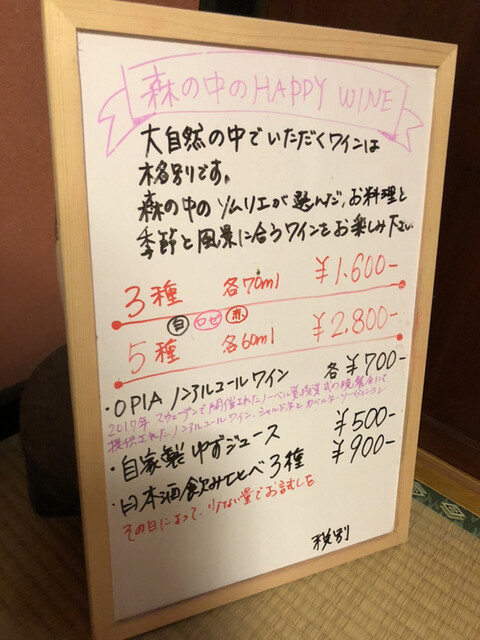 森の中のHAPPY WINE
大自然の中でいただくワインは
格別です。
森の中のソムリエが選んだ、お料理と
季節と風景に合うワインをお楽しみ下さい
3種 各70ml ¥1.600-
白 ロゼ 赤
5種 各60ml ¥2.800-
・OPIA ノンアルコールワイン 各¥700-
2017年 スウェーデンで開催されたノーベル賞授賞式の晩餐会にて
提供されたノンアルコールワイン。シャルドネとカベルネ・ソーヴィニヨン
・自家製ゆずジュース ¥500-
・日本酒飲みくらべ3種 ¥900-
その日によって、少ない量でお試しを
税別